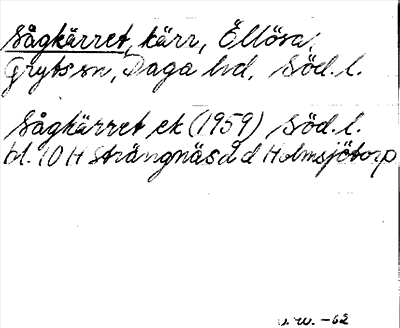 Sågkärret, kärr, Ëllösa,
Gryts sn, Daga hd, Söd. l.
Sågkärret ek (1959) Söd. l.
bl. 10 H Strängnäs å d Holmsjötorp
V. W. -62